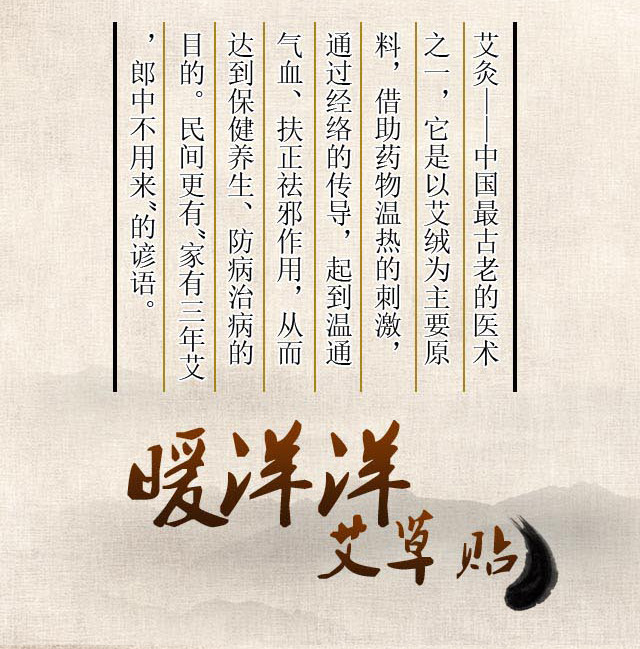 艾灸——中国最古老的医术
之一，它是以艾绒为主要原
料，借助药物温热的刺激，
通过经络的传导，起到温通
气血、扶正祛邪作用，从而
达到保健养生、防病治病的
目的。民间更有“家有三年艾
，郎中不用来”的谚语。
暖洋洋
艾草贴